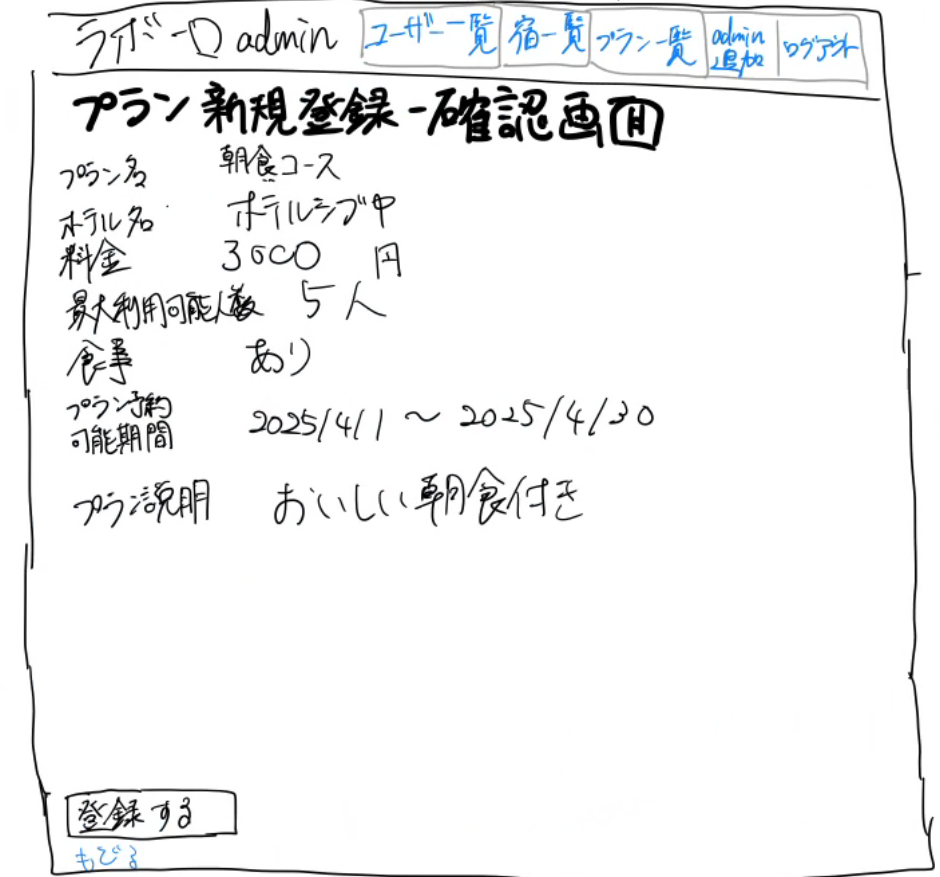 ライボーロ admin ユーザー一覧 宿一覧 プラン一覧 admin追加 ログアウト
プラン新規登録-確認画面
プラン名 朝食コース
ホテル名 ホテルシブ中
料金 3000 円
最大利用可能人数 5人
食事 あり
プラン予約
可能期間 2025/4/1 〜 2025/4/30
プラン説明 おいしい朝食付き
登録する
もどる